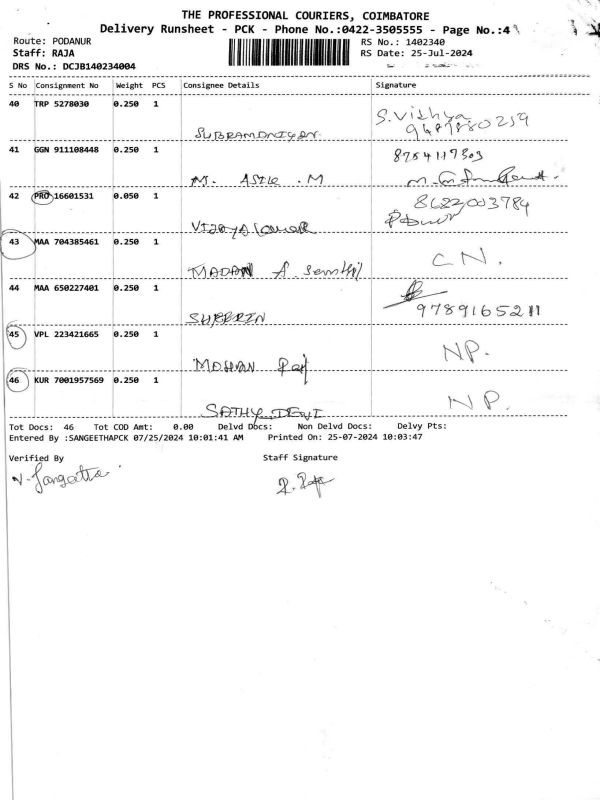 THE PROFESSIONAL COURIERS, COIMBATORE
Delivery Runsheet - PCK - Phone No.:0422-3505555 - Page No.:4
Route: PODANUR RS No.: 1402340
Staff: RAJA RS Date: 25-Jul-2024
DRS No.: DCJB140234004
S No Consignment No Weight PCS Consignee Details Signature
40 TRP 5278030 0.250 1 S. Vidhya
SUBRAMANIYAN 9487880259
41 GGN 911108448 0.250 1 8754117303
M. ASIK . M
42 PRO 16601531 0.050 1 8622003784
43 MAA 704385461 0.250 1 CN.
MADAN A. Senthil
44 MAA 650227401 0.250 1
SHERRIN 9789165211
45 VPL 223421665 0.250 1 NP.
MOHAN Raj
46 KUR 7001957569 0.250 1 NP.
SATHY DEVI
Tot Docs: 46 Tot COD Amt: 0.00 Delvd Docs: Non Delvd Docs: Delvy Pts:
Entered By :SANGEETHAPCK 07/25/2024 10:01:41 AM Printed On: 25-07-2024 10:03:47
Verified By Staff Signature
N. Sangeetha R. Raja